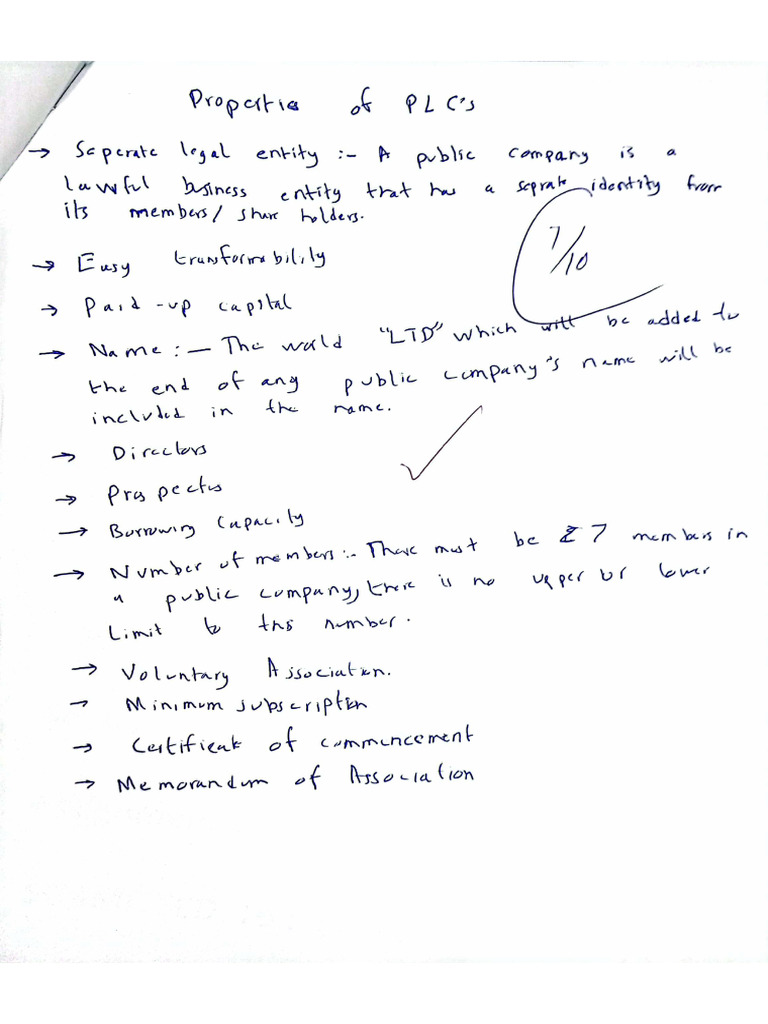 Properties of PLC's
→ Seperate legal entity :- A public company is a
lawful business entity that has a seprate identity from
its members/ share holders.
7/10
→ Easy transformability
→ Paid-up capital
→ Name :- The world "LTD" which will be added to
the end of any public company's name will be
included in the name.
→ Directors
→ Prospectus
→ Borrowing Capacity
→ Number of members :- There must be 7 members in
a public company, there is no upper or lower
limit to this number.
→ Voluntary Association.
→ Minimum subscription
→ Certificate of commencement
→ Memorandum of Association